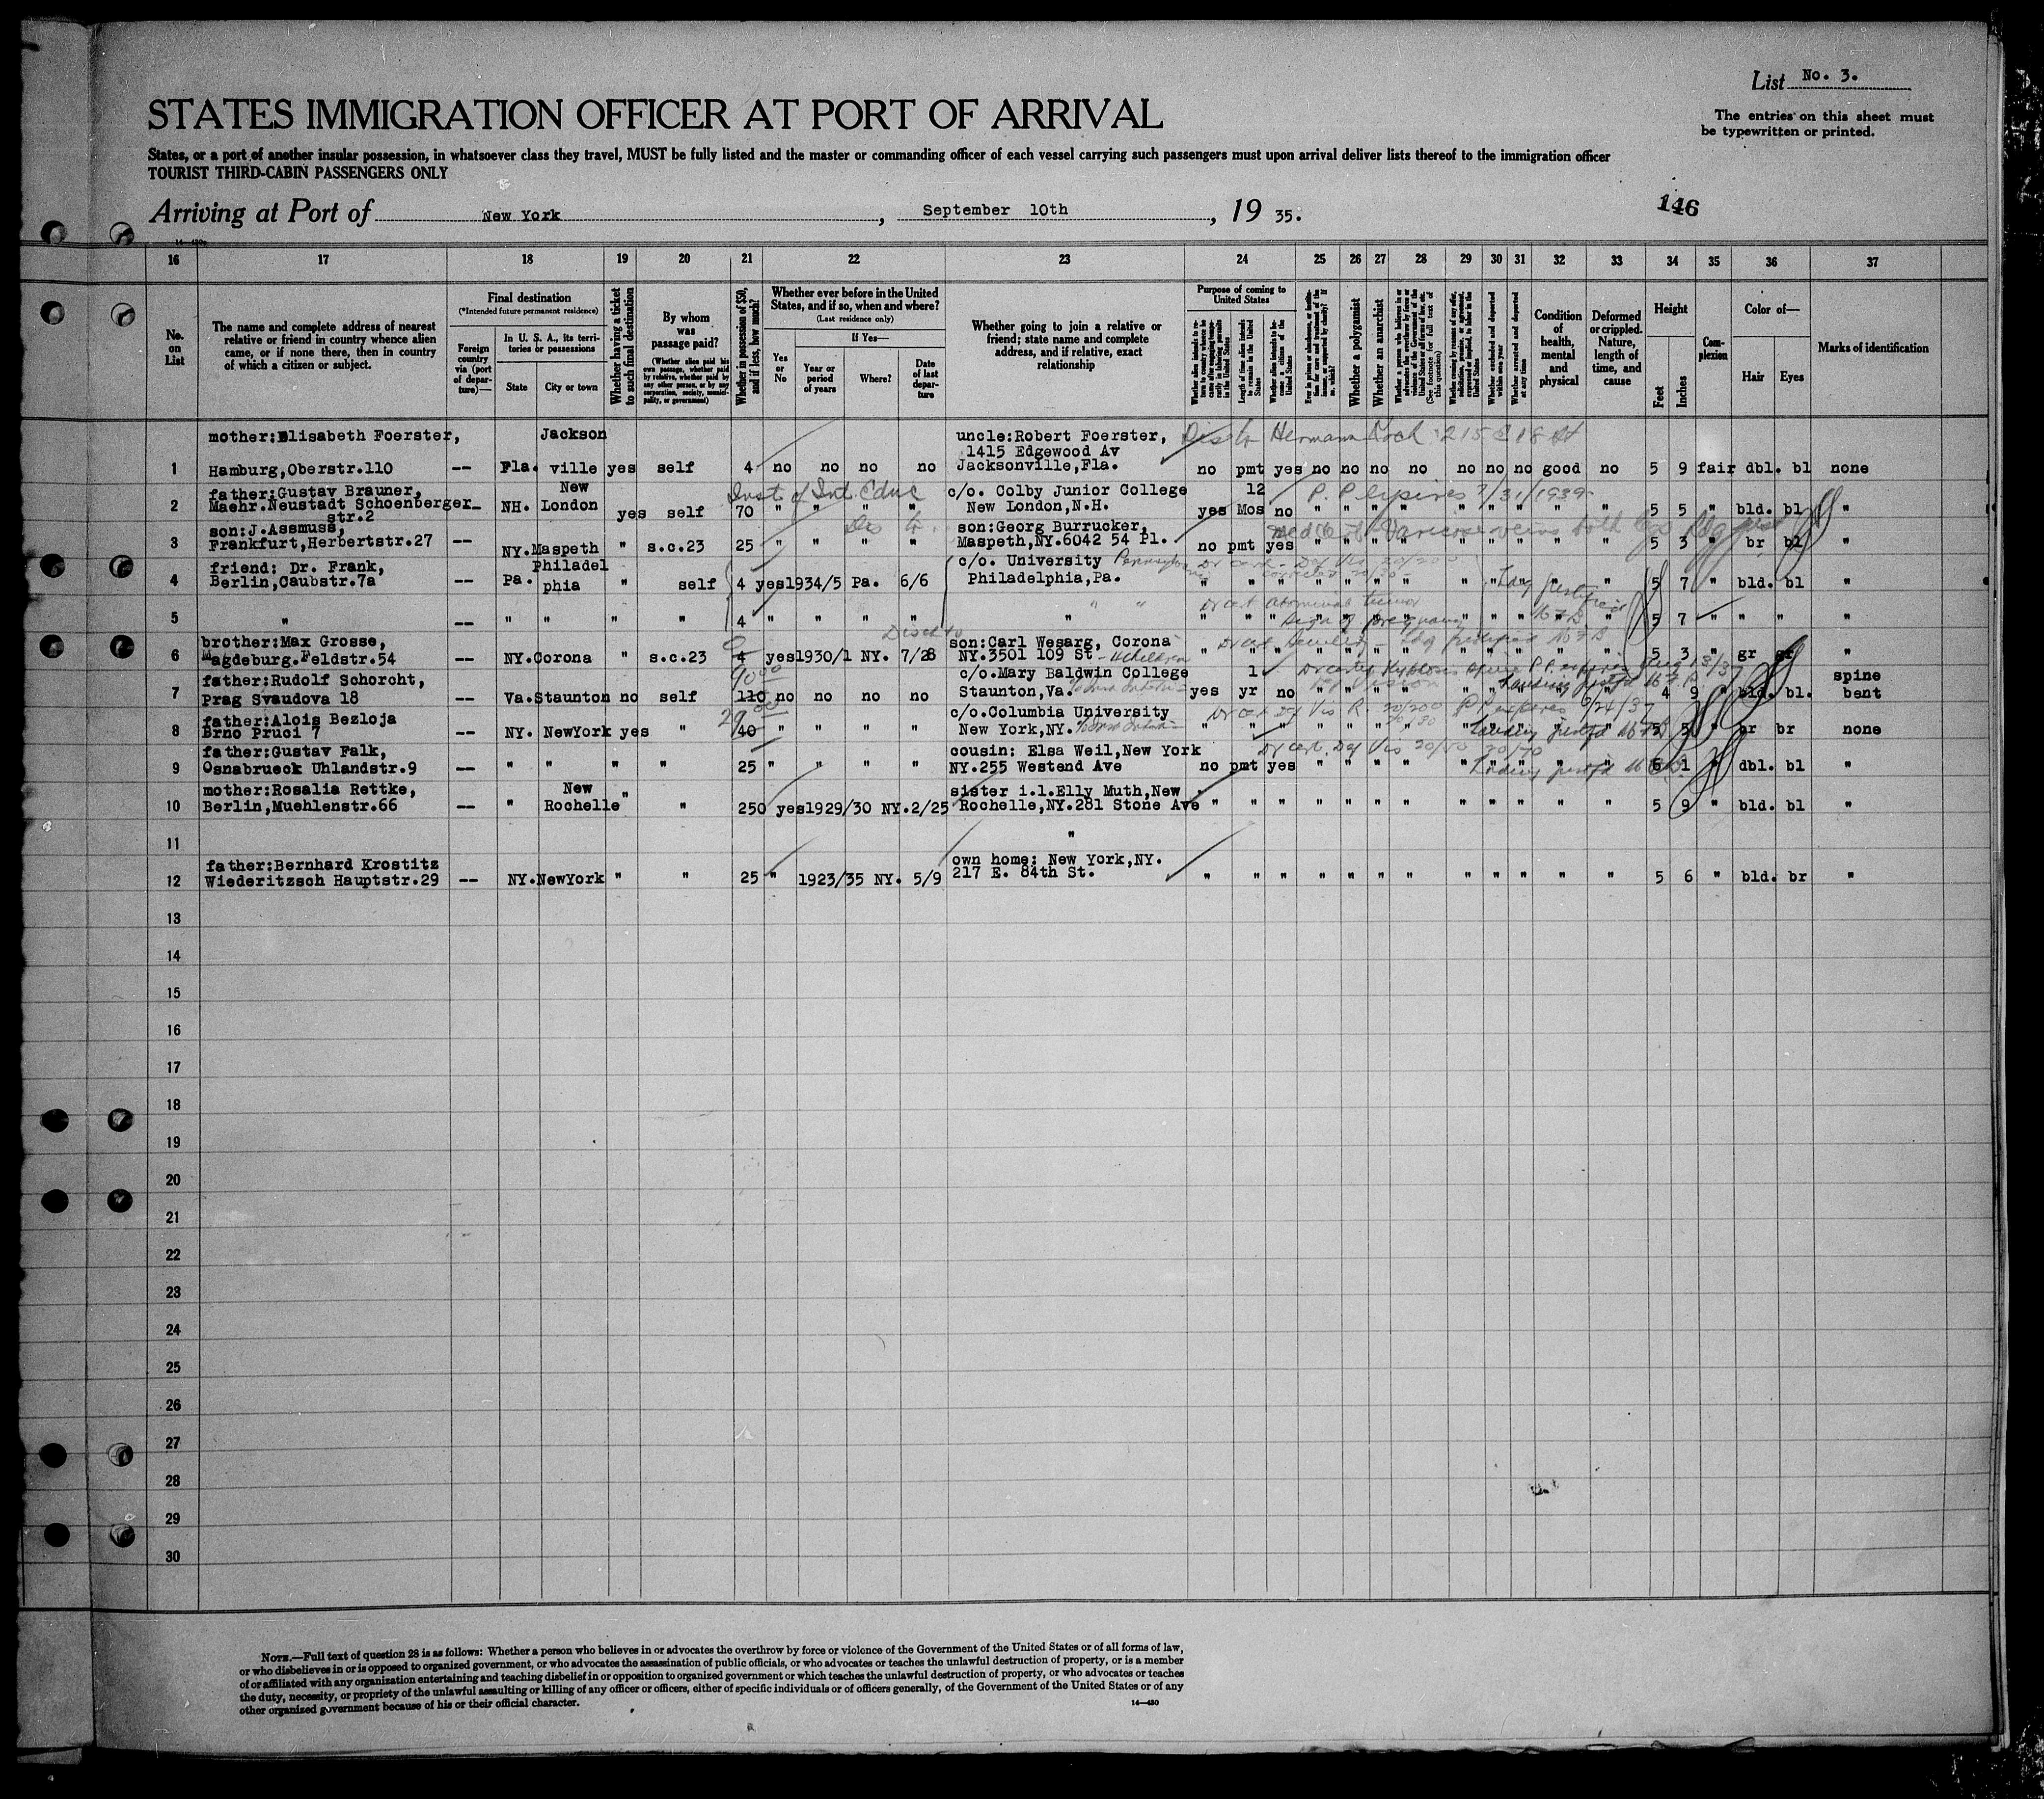 List No. 3.
The entries on this sheet must
be typewritten or printed.
STATES IMMIGRATION OFFICER AT PORT OF ARRIVAL
States, or a port of another insular possession, in whatsoever class they travel, MUST be fully listed and the master or commanding officer of each vessel carrying such passengers must upon arrival deliver lists thereof to the immigration officer
TOURIST THIRD-CABIN PASSENGERS ONLY
Arriving at Port of New York, September 10th, 19 35.
146
16 17 18 19 20 21 22 23 24 25 26 27 28 29 30 31 32 33 34 35 36 37
No. on List
The name and complete address of nearest
relative or friend in country whence alien
came, or if none there, then in country
of which a citizen or subject.
Final destination
(*Intended future permanent residence)
Foreign country via (port of departure)—
In U. S. A., its territories or possessions
State
City or town
Whether having a ticket to such final destination
By whom was passage paid?
(Whether alien paid his own passage, whether paid by relative, whether paid by any other person, or by any corporation, society, municipality, or government)
Whether in possession of $50, and if less, how much?
Whether ever before in the United
States, and if so, when and where?
(Last residence only)
Yes or No
If Yes—
Year or period of years
Where?
Date of last departure
Whether going to join a relative or
friend; state name and complete
address, and if relative, exact
relationship
Purpose of coming to United States
Length of time alien intends to remain in the United States
Whether alien intends to become a citizen of the United States
Whether a polygamist
Whether an anarchist
(See footnote for full text of this question)
Whether arrested and deported at any time
Condition of health, mental and physical
Deformed or crippled. Nature, length of time, and cause
Height
Feet
Inches
Complexion
Color of—
Hair
Eyes
Marks of identification
mother:Elisabeth Foerster, Jackson uncle:Robert Foerster, Hermann Koch 215 E 18 St
1415 Edgewood Av
1 Hamburg,Oberstr.110 -- Fla. ville yes self 4 no no no no Jacksonville,Fla. no pmt yes no no no no no no no good no 5 9 fair dbl. bl none
father:Gustav Brauner, New Inst of Int. Educ c/o. Colby Junior College 12 P.P. expires 7/31/1939
2 Maehr.Neustadt Schoenberger str.2 -- NH. London yes self 70 " " " " New London,N.H. yes Mos no " " " " " " " " " 5 5 " bld. bl "
son:J.Assmuss, son:Georg Burrucker, varicose veins both legs
3 Frankfurt,Herbertstr.27 -- NY.Maspeth " s.c.23 25 " " " " Maspeth,NY.6042 54 Pl. no pmt yes " " " " " " " " " 5 3 " br bl "
friend: Dr. Frank, Philadel c/o. University Pennsylvania
4 Berlin,Caubstr.7a -- Pa. phia " self 4 yes 1934/5 Pa. 6/6 Philadelphia,Pa. " " " " " " " " 5 7 " bld. bl "
5 " -- " " " " 4 " " " " " " " " " " " " 5 7 " " "
brother:Max Grosse, son:Carl Wesarg, Corona
6 Magdeburg.Feldstr.54 -- NY.Corona " s.c.23 4 yes 1930/1 NY. 7/28 NY.3501 109 St 4 children " " " " " " " " " 5 3 " gr gr "
father:Rudolf Schorcht, c/o.Mary Baldwin College 1 spine
7 Prag Svaudova 18 -- Va.Staunton no self 110 no no no no Staunton,Va. yes yr no " " " " " " " " 4 9 " bld. bl. bent
father:Alois Bezloja c/o.Columbia University
8 Brno Pruci 7 -- NY. NewYork yes " 40 " " " " New York,NY. " " " " " " " " " 5 5 " br br none
father:Gustav Falk, cousin: Elsa Weil,New York
9 Osnabrueck Uhlandstr.9 -- " " " " 25 " " " " NY.255 Westend Ave no pmt yes " " " " " " " 6 1 " dbl. bl "
mother:Rosalia Rettke, New sister i.l.Elly Muth,New
10 Berlin,Muehlenstr.66 -- " Rochelle " " 250 yes 1929/30 NY. 2/25 Rochelle,NY.281 Stone Ave " " " " " " " " " " " " 5 9 " bld. bl "
11 "
father:Bernhard Krostitz own home: New York,NY.
12 Wiederitzsch Hauptstr.29 -- NY.NewYork " " 25 " 1923/35 NY. 5/9 217 E. 84th St. " " " " " " " " " " " " 5 6 " bld. br "
13
14
15
16
17
18
19
20
21
22
23
24
25
26
27
28
29
30
NOTE.—Full text of question 28 is as follows: Whether a person who believes in or advocates the overthrow by force or violence of the Government of the United States or of all forms of law,
or who disbelieves in or is opposed to organized government, or who advocates the assassination of public officials, or who advocates or teaches the unlawful destruction of property, or is a member
of or affiliated with any organization entertaining and teaching disbelief in or opposition to organized government or which teaches the unlawful destruction of property, or who advocates or teaches
the duty, necessity, or propriety of the unlawful assaulting or killing of any officer or officers, either of specific individuals or of officers generally, of the Government of the United States or of any
other organized government because of his or their official character.
14—430